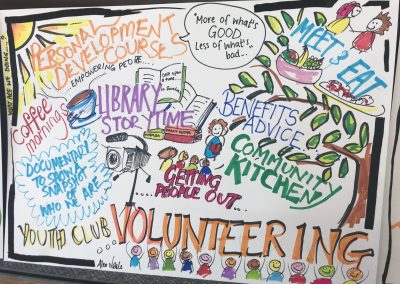 WHAT ARE WE DOING...?
PERSONAL
DEVELOPMENT
COURSES
...EMPOWERING PEOPLE...
"More of what's
GOOD,
Less of what's...
bad...
MEET &
EAT
Coffee
mornings
LIBRARY
STORYTIME
BENEFITS
ADVICE
COMMUNITY
KITCHEN
DOCUMENTARY
TO SHOW
SNAPSHOT
of
WHO WE ARE
GETTING
PEOPLE OUT...
YOUTH CLUB
VOLUNTEERING